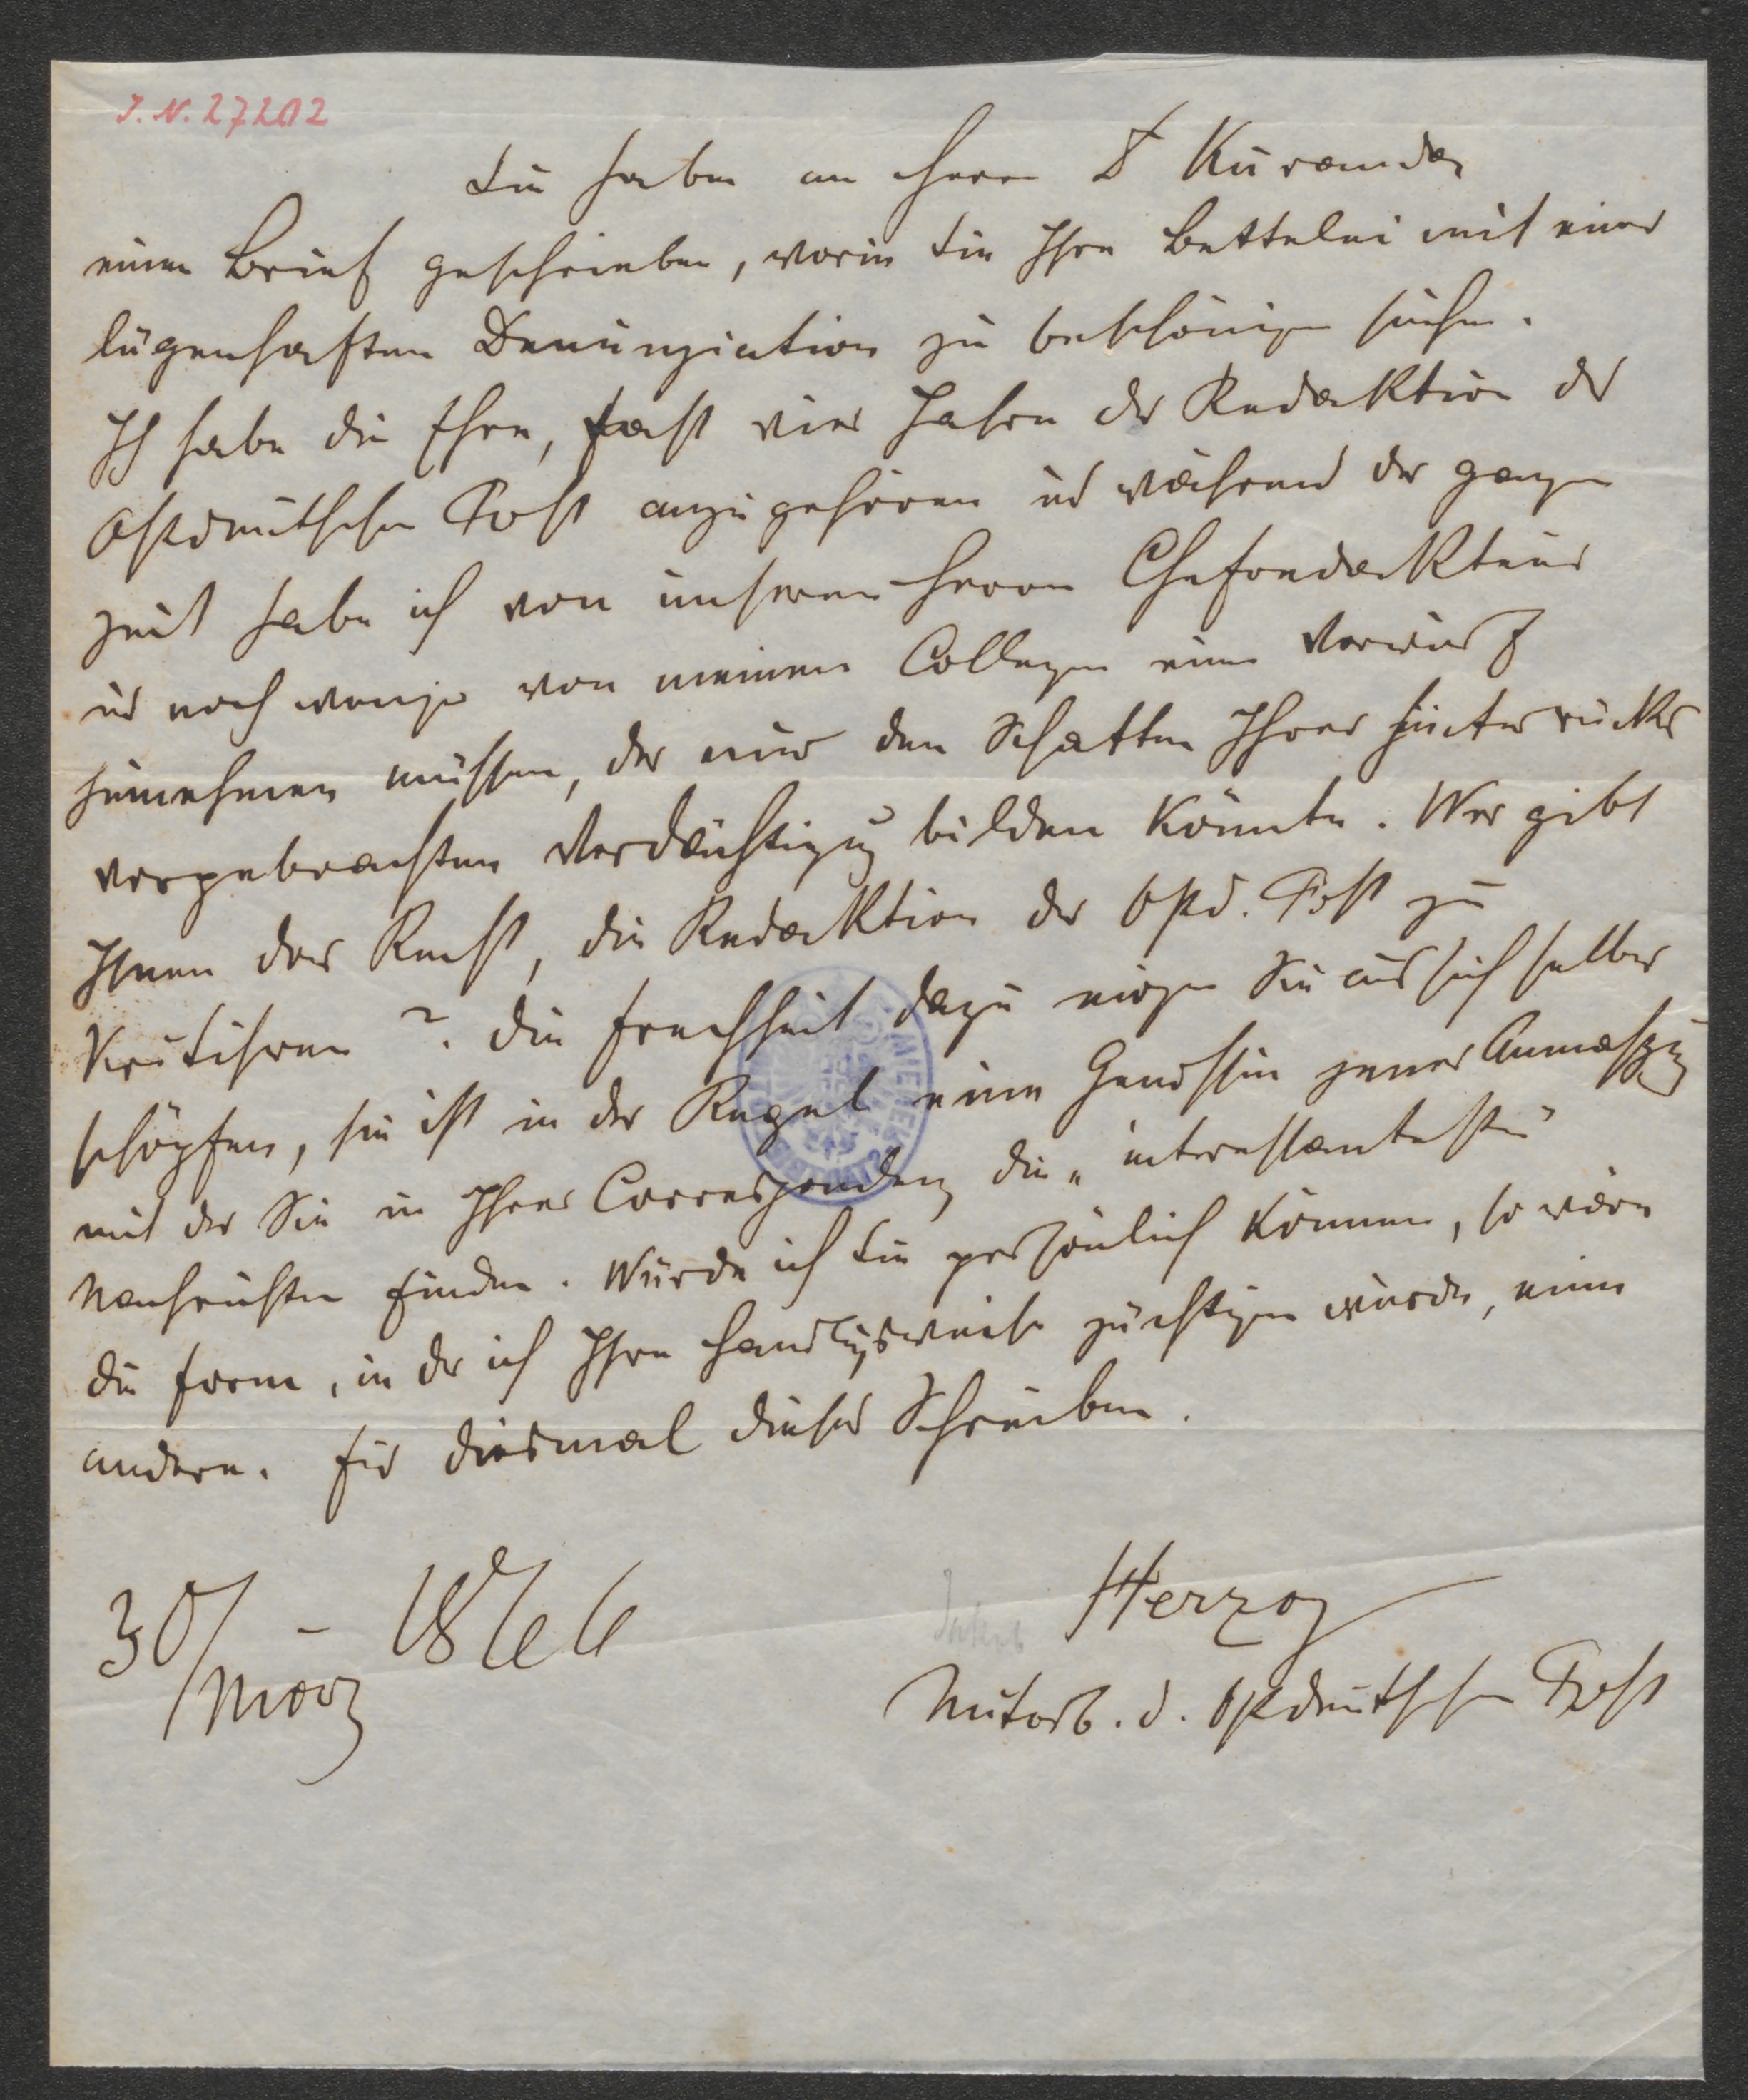 J. N. 27202
Sie haben an Herrn Dr Kuranda
einen Brief geschrieben, worin Sie Ihre Bettelei mit einer
lügenhaften Denunziation zu beschönigen suchen.
Ich habe die Ehre, fast vier Jahre der Redaktion der
Ostdeutschen Post anzugehören und während der ganzen
Zeit habe ich von unserem Herrn Chefredakteur
und noch weniger von meinen Collegen einen Vorwurf
hinnehmen müssen, der nur den Schatten Ihrer hinterrücks
vorgebrachten Verdächtigung bilden könnte. Wer gibt
Ihnen das Recht, die Redaktion der Ostd. Post zu
kritisiren? Die Frechheit dazu mögen Sie aus sich selber
schöpfen, sie ist in der Regel eine Genossin jener Anmaßung
mit der Sie in Ihrer Correspondenz die „interessantesten"
Nachrichten finden. Würde ich Sie persönlich kennen, so wäre
die Form, in der ich Ihre Handlungsweise züchtigen würde, eine
andere. Für diesmal dieses Schreiben.
30/März – 1866
Jakob Herzog
Mitarb. d. Ostdeutschen Post